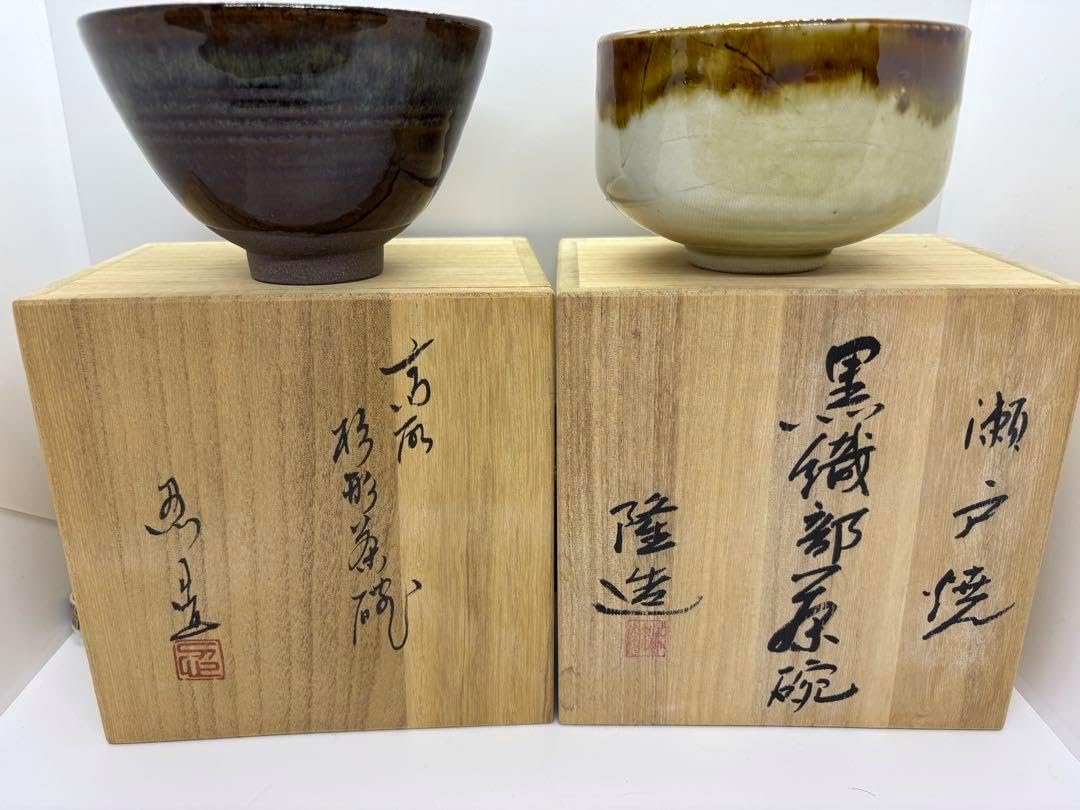 高取
杉形茶碗
瀬戸焼
黒織部茶碗
隆造